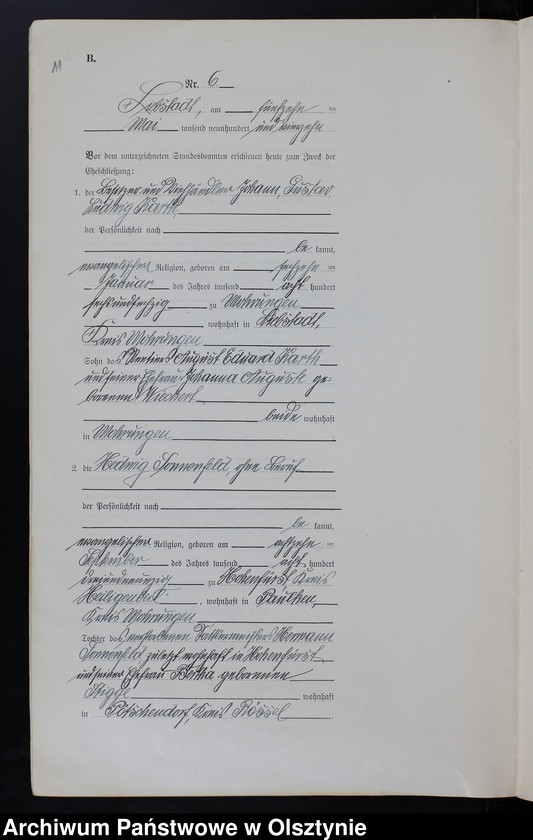 11
B.
Nr. 6
Liebstadt, am fünfzehn ten
Mai tausend neunhundert und vierzehn
Vor dem unterzeichneten Standesbeamten erschienen heute zum Zweck der
Eheschließung:
1. der Besitzer und Viehhändler Johann, Gustav
Ludwig Karth
der Persönlichkeit nach
be kannt,
evangelischer Religion, geboren am sechzehn ten
Januar des Jahres tausend acht hundert
sechsundsechzig zu Mohrungen
wohnhaft in Liebstadt,
Kreis Mohrungen
Sohn des Rentiers August Eduard Karth
und seiner Ehefrau Johanna Auguste ge-
borenen
beide wohnhaft
in Mohrungen
2. die Hedwig Sonnenfeld, ohne Beruf
der Persönlichkeit nach
be kannt,
evangelischer Religion, geboren am achtzehn ten
September des Jahres tausend acht hundert
dreiundneunzig zu Hohenfürst Kreis
Heiligenbeil, wohnhaft in Paulken,
Kreis Mohrungen
Tochter des verstorbenen Sattlermeisters Hermann
Sonnenfeld zuletzt wohnhaft in Hohenfürst
und seiner Ehefrau Bertha geborenen
wohnhaft
in Pötschendorf, Kreis Rössel
Archiwum Państwowe w Olsztynie